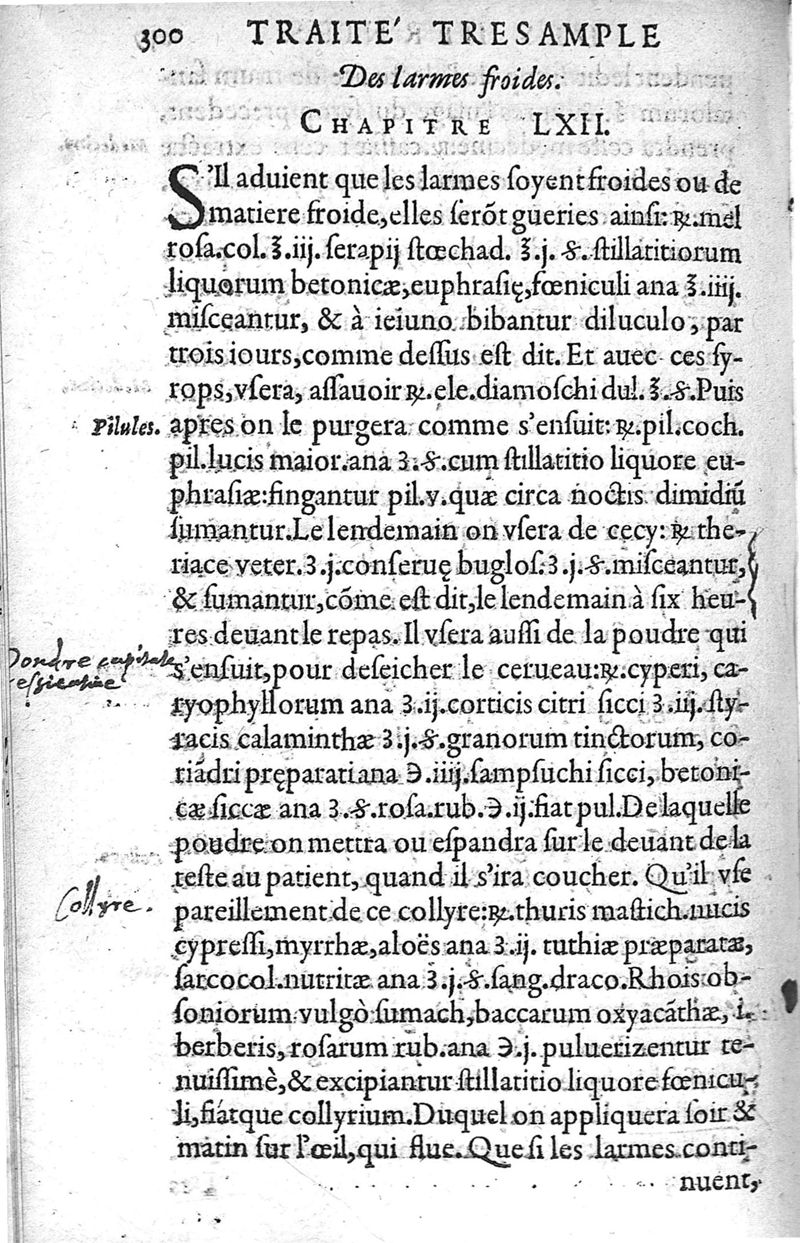 300 TRAITÉ TRESAMPLE
Des larmes froides.
CHAPITRE LXII.
S'Il aduient que les larmes ſoyent froides ou de
matiere froide, elles ſerõt gueries ainſi: ℞. mel
roſa. col. ℥. iij. ſerapij ſtœchad. ℥. j. ß. ſtillatitiorum
liquorum betonicæ, euphraſię, fœniculi ana ℥. iiij.
miſceantur, & à ieiuno bibantur diluculo, par
trois iours, comme deſſus eſt dit. Et auec ces ſy-
rops, vſera, aſſauoir ℞. ele. diamoſchi dul. ℥. ß. Puis
Pilules. apres on le purgera comme s'enſuit: ℞. pil. coch.
pil. lucis maior. ana ʒ. ß. cum ſtillatitio liquore eu-
phraſiæ: fingantur pil. v. quæ circa noctis dimidiũ
ſumantur. Le lendemain on vſera de cecy: ℞ the-
riace veter. ʒ. j. conſeruę bugloſ. ʒ. j. ß. miſceantur,
& ſumantur, cõme eſt dit, le lendemain à ſix heu-
res deuant le repas. Il vſera auſſi de la poudre qui
s'enſuit, pour deſeicher le cerueau: ℞. cyperi, ca-
ryophyllorum ana ʒ. ij. corticis citri ſicci ʒ. iij. ſty-
racis calaminthæ ʒ. j. ß. granorum tinctorum, co-
riãdri pręparati ana ℈. iiij. ſampſuchi ſicci, betoni-
cæ ſiccæ ana ʒ. ß. roſa. rub. ℈. ij. fiat pul. De laquelle
poudre on mettra ou eſpandra ſur le deuant de la
teſte au patient, quand il s'ira coucher. Qu'il vſe
Collyre. pareillement de ce collyre: ℞. thuris maſtich. nucis
cypreſſi, myrrhæ, aloës ana ʒ. ij. tuthiæ præparatæ,
ſarcocol. nutritæ ana ʒ. j. ß. ſang. draco. Rhois ob-
ſoniorum vulgò ſumach, baccarum oxyacãthæ, i.
berberis, roſarum rub. ana ℈. j. puluerizentur te-
nuiſſimè, & excipiantur ſtillatitio liquore fœnicu-
li, fiátque collyrium. Duquel on appliquera ſoir &
matin ſur l'œil, qui flue. Que ſi les larmes conti-
nuent,